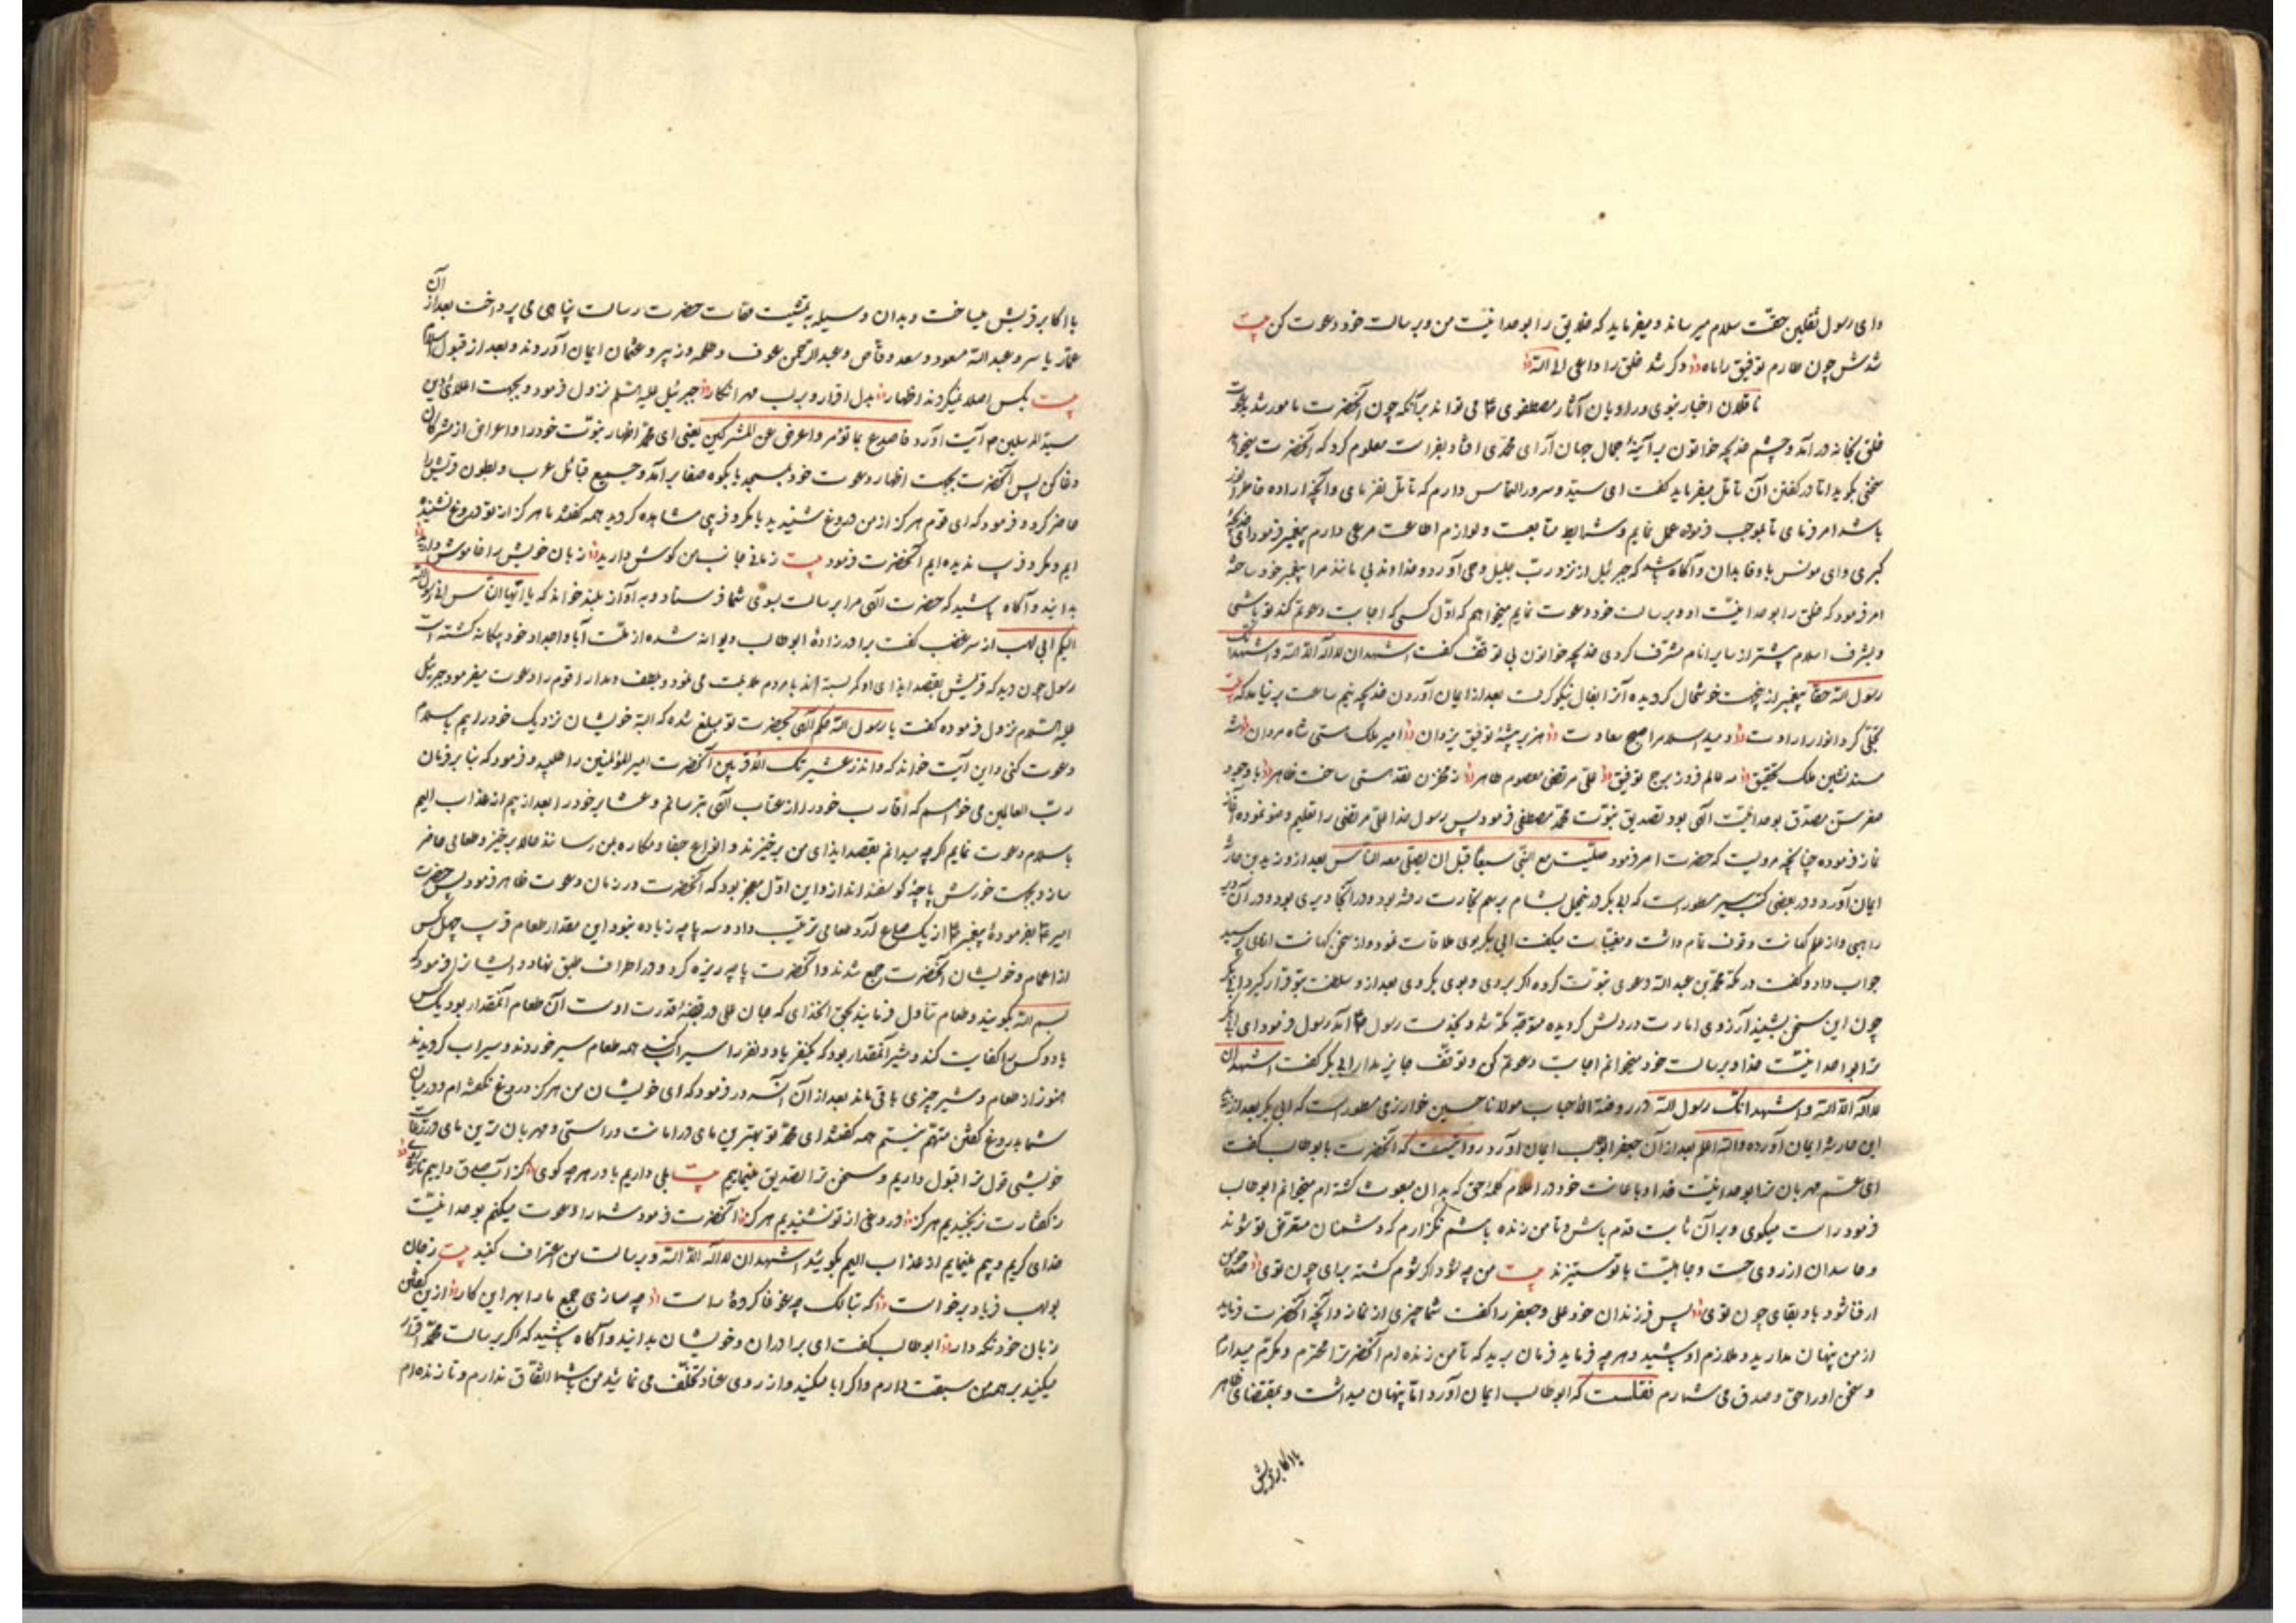 وای رسول ثقلین حقت سلام میرساند و میفرماید که خلایق را بوحدانیت من و برسالت خود دعوت کن بیت
شدش چون طارم توفیق را ماه و کر شد خلق را داعی الی الله
ناقلان اخبار نبوی و راویان آثار مصطفوی می تواند برآنکه چون آنحضرت مامور شد بدعوت
خلق بخانه درآمد و چشم خدیجه خواتون برآیینهٔ جمال جهان آرای محمدی افتاد بفراست معلوم کرد که آنحضرت میخواهد
سخنی بکوید اما در کفتن آن تأمل میفرماید کفت ای سید و سرور التماس دارم که تأمل نفرمای و آنچه اراده خاطر
باشد امر فرمای تا بموجب فرموده عمل نمایم و شرایط متابعت و لوازم اطاعت مرعی دارم پیغمبر فرمود ای خدیجهٔ
کبری و ای مونس با وفا بدان و آکاه باش که جبرئیل از نزد رب جلیل وحی آورد و خداوند بی مانند مرا پیغمبر خود ساخته
امر فرمود که خلق را بوحدانیت او و برسالت خود دعوت نمایم میخواهم که اول کسی که اجابت دعوتم کند تو باشی
و بشرف اسلام پیشتر از سایر انام مشرف کردی خدیجه خواتون بی توقف کفت اشهد ان لا اله الا الله و اشهد انک
رسول الله حقا پیغمبر از بهجت خوشحال کردیده آنرا بفال نیکو کرفت بعد از ایمان آوردن خدیجه نیم ساعت بر نیامد که بیت
تجلی کرد انوار ارادت دمید اسلام را صبح سعادت هزبر بیشهٔ توفیق یزدان امیر ملک هستی شاه مردان شه
مسند نشین ملک تحقیق مه عالم فروز برج توفیق علی مرتضی معصوم طاهر ز مخزن نقد هستی ساخت ظاهر با وجود
صغر سن مصدق بوحدانیت الهی بود تصدیق نبوت محمد مصطفی فرمود پس رسول خدا علی مرتضی را تعلیم وضو نموده آغاز
نماز فرموده چنانچه مرویست که حضرت امیر فرمود صلیت مع النبی سبعا قبل ان یصلی معه الناس بعد از و زید بن حارثه
ایمان آورد و در بعضی کتب سیر مسطور است که ابی بکر در تخیل بشام برسم تجارت رفته بود و در آنجا دیری بود و در آن دیر
راهبی و از علم کهانت وقوف تمام داشت و مغیبات میکفت ابی بکر بوی ملاقات نمود و از سخن کهانت اثای پرسید
جواب داد و کفت در مکه محمد بن عبد الله دعوی نبوت کرده اکر بروی و بوی بکروی بعد از و سلطنت بتو قرار کیرد ابی بکر
چون این سخن بشنید آرزوی امارت در دلش کردیده متوجه مکه شد و بخدمت رسول آمد رسول فرمود ای ابی بکر
ترا بوحدانیت خدا و برسالت خود میخوانم اجابت دعوتم کن و توقف جایز مدار ابی بکر کفت اشهد ان
لا اله الا الله و اشهد انک رسول الله در روضة الاحباب مولانا حسین خوارزمی مسطور است که ابی بکر بعد از زید
ابن حارثه ایمان آورده والله اعلم بعد از آن جعفر ابوطالب ایمان آورد روایتست که آنحضرت با بوطالب کفت
ای عم مهربان ترا بوحدانیت خدا و باعانت خود در اعلام کلمهٔ حق که بدان مبعوث کشته ام میخوانم ابوطالب
فرمود راست میکوی و برآن ثابت قدم باش و تا من زنده باشم نکذارم که دشمنان متعرض تو شوند
و حاسدان از روی حمیت و جاهلیت با تو ستیزند بیت من چه شود اکر شوم کشته برای چون توی صد چو من
ار فنا شود باد بقای چون توی پس فرزندان خود علی و جعفر را کفت شما چیزی از نماز و آنچه آنحضرت فرماید
از من پنهان مدارید و ملازم او باشید و هر چه فرماید فرمان برید که تا من زنده ام آنحضرت را محترم و مکرم میدارم
و سخن او را حق و صدق می شمارم نقلست که ابوطالب ایمان آورد اما پنهان میداشت و بمقتضای ظاهر
با اکابر قریش
با اکابر قریش میساخت و بدان وسیله به تمشیت مهمات حضرت رسالت پناهی می پرداخت بعد از آن
عمار یاسر و عبد الله مسعود و سعد وقاص و عبدالرحمن عوف و طلحه و زبیر و عثمان ایمان آوردند و بعد از قبول اسلام
بیت بکس اصلا نمیکردند اظهار بدل اقرار و بر لب مهر انکار جبرئیل علیه السلم نزول فرمود و بجهت اعلای دین
سید المرسلین آیت آورد فاصدع بما تؤمر و اعرض عن المشرکین یعنی ای محمد اظهار نبوت خود را و اعراض از مشرکان
دفا کن پس آنحضرت بجهت اظهار دعوت خود بمسجد یا بکوه صفا برآمد و جمیع قبائل عرب و بطون قریش را
حاضر کرد و فرمود که ای قوم هرکز از من دروغ شنیدید یا مکر و فریبی مشاهده کردید همه کفتند ما هرکز از تو دروغ نشنیده
ایم و مکر و فریب ندیده ایم آنحضرت فرمود بیت زمانی جانب من کوش دارید زبان خویش را خاموش دارید
بدانید و آکاه باشید که حضرت الهی مرا برسالت بسوی شما فرستاد و به آواز بلند خواند که یا ایها الناس انی رسول الله
الیکم ابی لهب از سر غضب کفت برادر زادهٔ ابوطالب دیوانه شده از ملت آبا و اجداد خود بیکانه کشته است
رسول چون دید که قریش بقصد ایذای او کمر بسته اند با مردم ملایمت می نمود و بلطف و مدارا قوم را دعوت میفرمود جبرئیل
علیه السلام نزول فرموده کفت یا رسول الله حکم الهی بحضرت تو مبلغ شده که البته خویشان نزدیک خود را بهم باسلام
دعوت کنی و این آیت خواند که وانذر عشیرتک الاقربین آنحضرت امیر المؤمنین را طلبید و فرمود که بنا بر فرمان
رب العالمین می خواهم که اقارب خود را از عتاب الهی بترسانم و عشایر خود را بعد از بیم از عذاب الیم
باسلام دعوت نمایم اکرچه میدانم بقصد ایذای من برخیزند و انواع جفا و مکاره بمن رسانند حالا برخیز و طعامی حاضر
ساز و بجهت خورش پاچهٔ کوسفند انداز و این اول معجز بود که آنحضرت در زمان دعوت ظاهر فرمود پس حضرت
امیر بفرمودهٔ پیغمبر از یک صاع آرد طعامی ترتیب داد و سه پاچه زیاده نبود این مقدار طعام قرب چهل کس
از اعمام و خویشان آنحضرت جمع شدند و آنحضرت پاچه ریزه کرد و در اطراف طبق نهاد و ایشانرا فرمود که
بسم الله بکویید و طعام تناول فرمایید بحق آنخدای که جان علی در قبضهٔ قدرت اوست آن طعام آنمقدار بود یک کس
یا دو کس را کفایت کند و شیر آنمقدار بود که یکنفر یا دو نفر را سیراب کند همه طعام سیر خوردند و سیراب کردیدند
هنوز از طعام و شیر چیزی باقی ماند بعد از آن آنسرور فرمود که ای خویشان من هرکز دروغ نکفته ام و در میان
شما بدروغ کفتن متهم نیستم همه کفتند ای محمد تو بهترین مای در امانت و راستی و مهربان ترین مای در رعایت
خویشی قول ترا قبول داریم و سخن ترا تصدیق مینماییم بیت بلی داریم باور هر چه کوی کز آب صدق داریم تازه روی
ز کفتارت نرنجیدیم هرکز دروغی از تو نشنیدیم هرکز آنحضرت فرمود شما را دعوت میکنم بوحدانیت
خدای کریم و بیم مینمایم از عذاب الیم بکویید اشهد ان لا اله الا الله و برسالت من اعتراف کنید بیت ز جان
بولهب فریاد برخواست که تبا لک چه غوغا کردهٔ راست چه سازی جمع ما را بهر این کار ازین کفتن
زبان خود نکه دار ابوطالب کفت ای برادران و خویشان بدانید و آکاه باشید که اکر برسالت محمد اقرار
میکنید بر همه من سبقت دارم و اکر ابا میکنید و از روی عناد تخلف می نمایید من با شما اتفاق ندارم و تا زنده ام